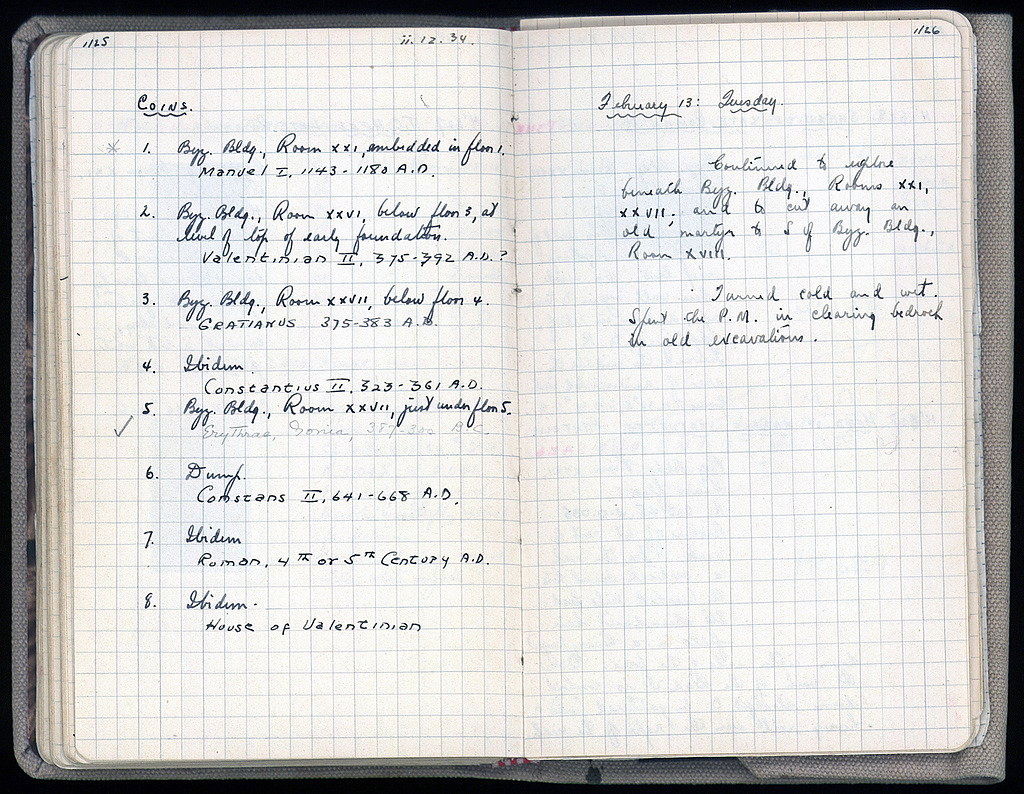 1125
ii. 12. 34.
Coins.
* 1. Byz. Bldg., Room XXI, embedded in floor 1.
Manuel I, 1143-1180 A.D.
2. Byz. Bldg., Room XXVI, below floor 3, at
level of top of early foundation.
Valentinian II, 375-392 A.D.?
3. Byz. Bldg., Room XXVII, below floor 4.
GRATIANUS 375-383 A.D.
4. Ibidem.
Constantius II, 323-361 A.D.
5. Byz. Bldg., Room XXVII, just under floor 5.
✓ Erythrae, Ionia, 387-300 B.C.
6. Dump.
Constans II, 641-668 A.D.
7. Ibidem
Roman, 4TH or 5TH Century A.D.
8. Ibidem.
House of Valentinian
1126
February 13: Tuesday.
Continued to explore
beneath Byz. Bldg., Rooms XXI,
XXVII. and to cut away an
old martyr to S of Byz. Bldg.,
Room XVIII.
Turned cold and wet.
Spent the P.M. in clearing bedrock
in old excavations.